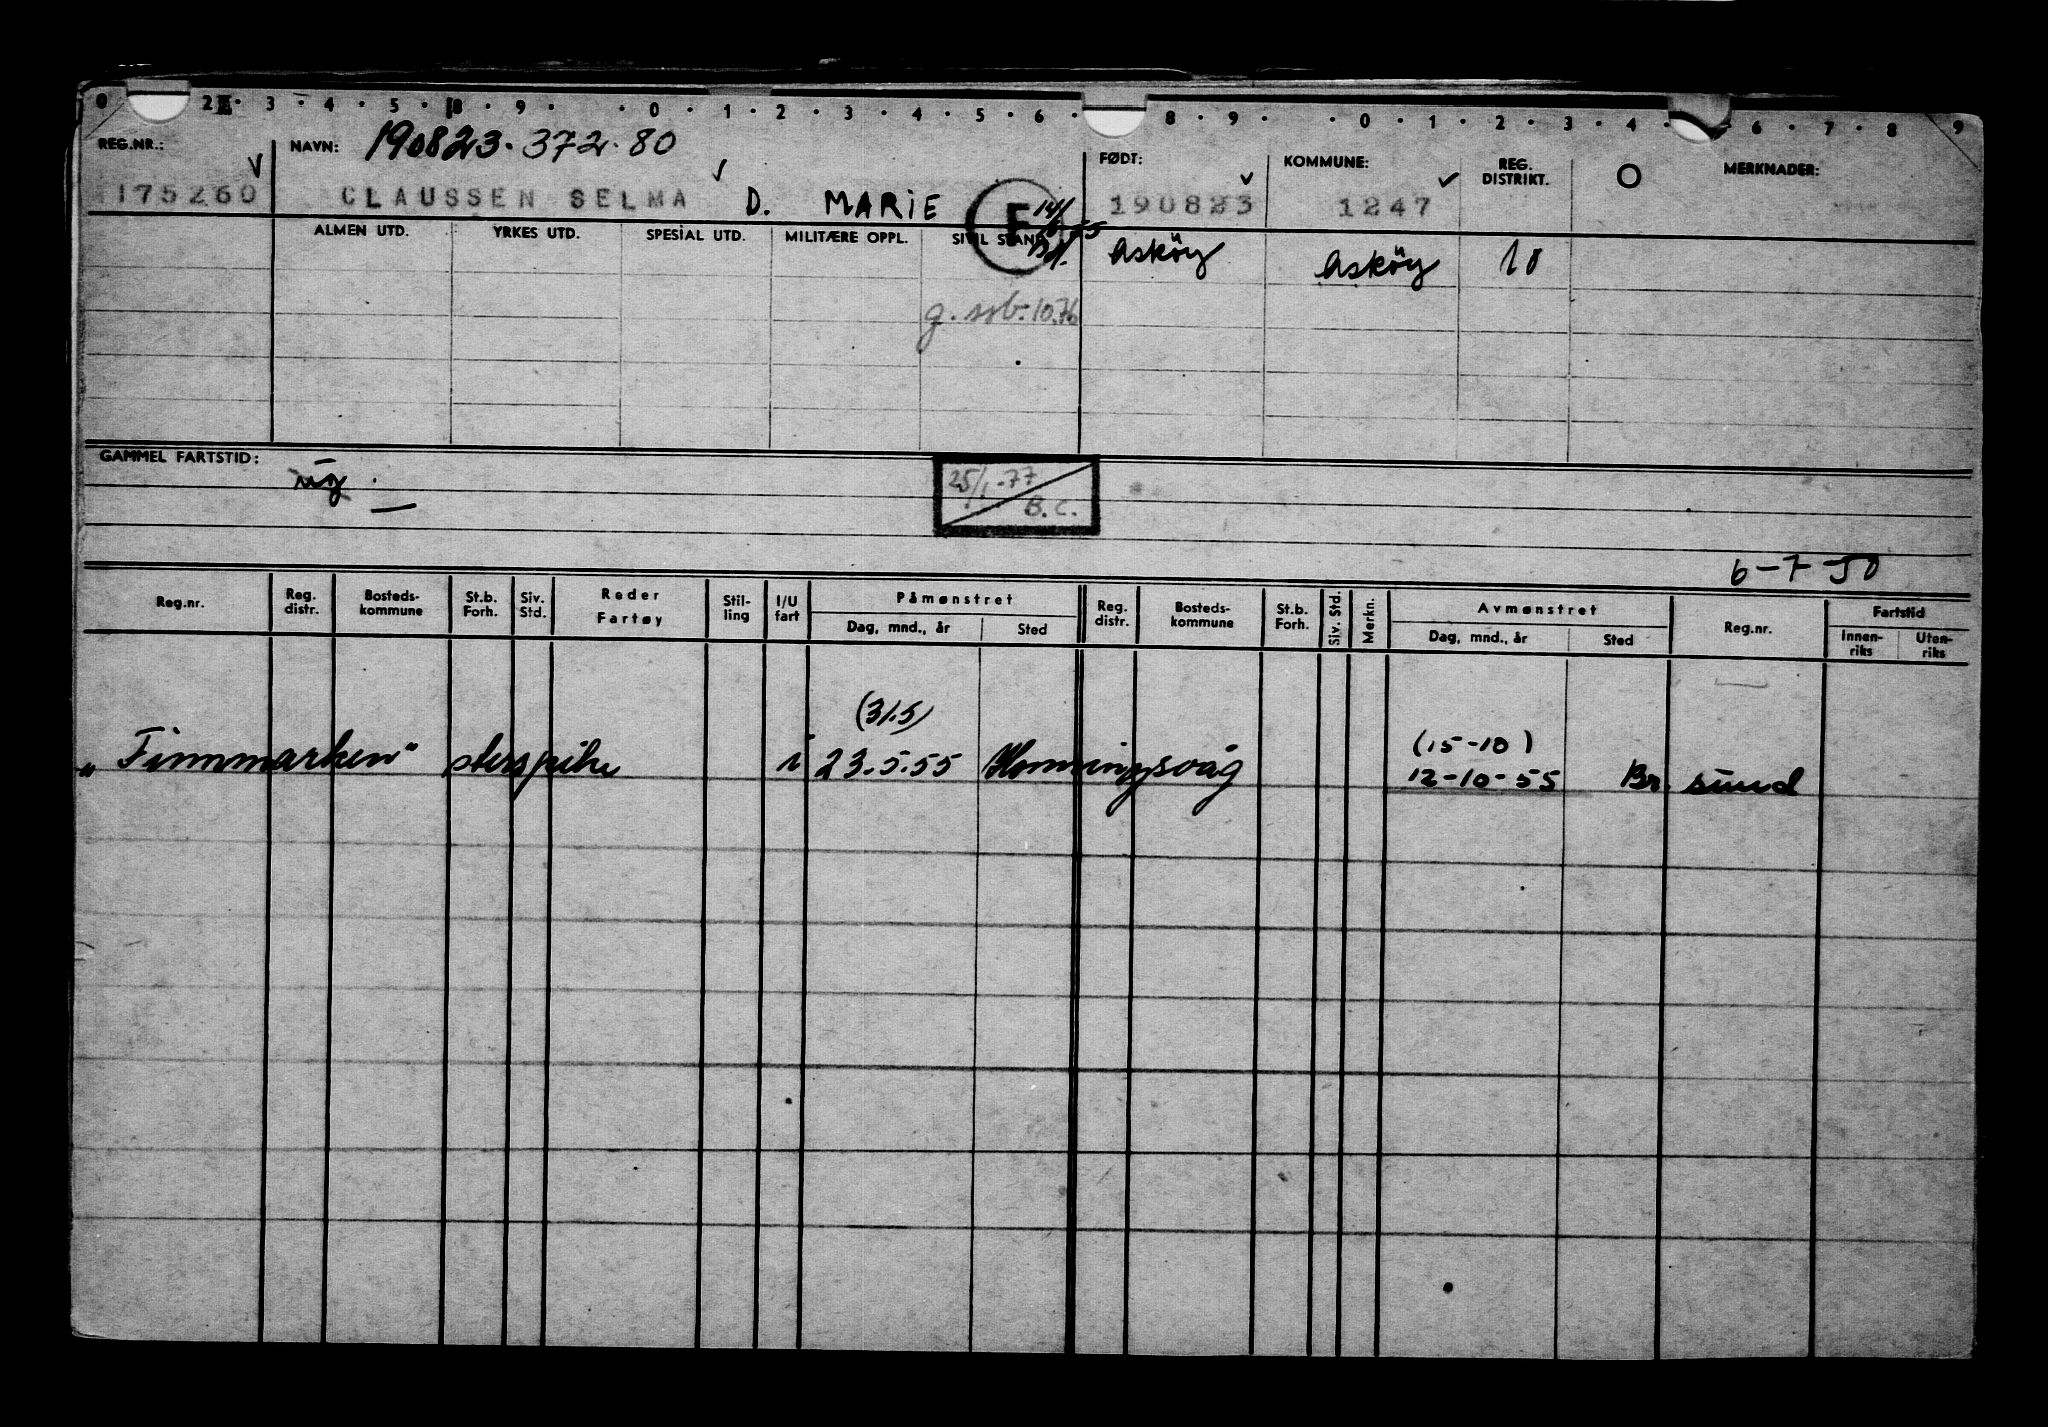 0 2 · 3 · 4 · 5 · 8 · 9 · · 0 · 1 · 2 · 3 · 4 · 5 · 6 · 8 · 9 · · 0 · 1 · 2 · 3 · 4 · 6 · 7 · 8 9
REG.NR.: NAVN: 190823. 372. 80 FØDT: KOMMUNE: REG. DISTRIKT. O MERKNADER:
175260 CLAUSSEN SELMA D. MARIE E 190823 1247
ALMEN UTD. YRKES UTD. SPESIAL UTD. MILITÆRE OPPL. SIVIL STAND Asköy Asköy 10
g. 10.76
GAMMEL FARTSTID:
25/1-77
B.C.
6-7-50
Reg.nr. Reg. distr. Bosteds- kommune St.b. Forh. Siv. Std. Reder Fartøy Stil- ling I/U fart Påmønstret Dag, mnd., år Sted Reg. distr. Bosteds- kommune St.b. Forh. Siv. Std. Merkn. Avmønstret Dag, mnd., år Sted Reg.nr. Fartstid Innen- riks Uten- riks
(31.5) (15-10)
"Finnmarken" sterspike i 23.5.55 Honningsvåg 12-10-55 Br. sund